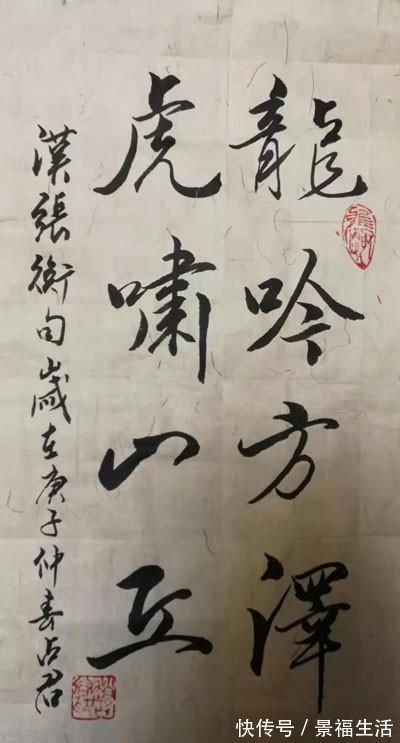 龍吟方澤
虎嘯山丘
漢張衡句歲在庚子仲春占君
快传号/景福生活